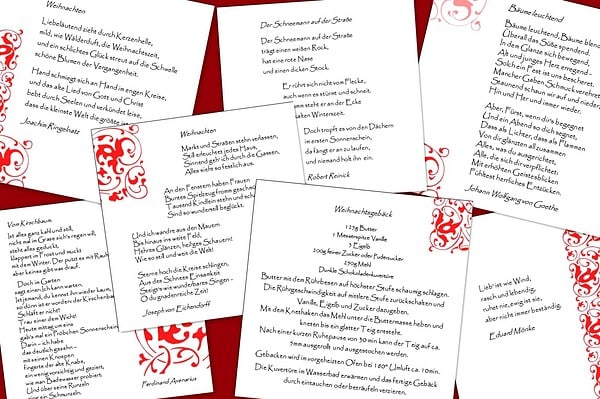 Weihnachten
Liebeläutend zieht durch Kerzenhelle,
mild, wie Wälderduft, die Weihnachtszeit,
und ein schlichtes Glück streut auf die Schwelle
schöne Blumen der Vergangenheit.
Hand schmiegt sich an Hand im engen Kreise,
und das alte Lied von Gott und Christ
bebt durch Seelen und verkündet leise,
dass die kleinste Welt die größte
Joachim Ringelnatz
Der Schneemann auf der Straße
Der Schneemann auf der Straße
trägt einen weißen Rock,
hat eine rote Nase
und einen dicken Stock.
Er rührt sich nicht vom Flecke,
auch wenn es stürmt und schneit.
steht er an der Ecke
kalten Winterszeit.
Doch tropft es von den Dächern
im ersten Sonnenschein,
da fängt er an zu laufen,
und niemand holt ihn ein.
Robert Reinick
Bäume leuchtend
Bäume leuchtend, Bäume blendend,
Überall das Süße spendend,
In dem Glanze sich bewegend,
Alt und junges Herz erregend -
Solch ein Fest ist uns bescheret,
Mancher Gaben Schmuck verehret;
Staunend schaun wir auf und nieder,
Hin und Her und immer wieder.
Aber, Fürst, wenn dir's begegnet
Und ein Abend so dich segnet,
Dass als Lichter, dass als Flammen
Vor dir glänzten all zusammen
Alles, was du ausgerichtet,
Alle, die sich dir verpflichtet:
Mit erhöhten Geistesblicken
Fühltest herrliches Entzücken.
Johann Wolfgang von Goethe
Weihnachten
Markt und Straßen stehn verlassen,
Still erleuchtet jedes Haus,
Sinnend geh ich durch die Gassen,
Alles sieht so festlich aus.
An den Fenstern haben Frauen
Buntes Spielzeug fromm geschmückt,
Tausend Kindlein stehn und schauen,
Sind so wundervoll beglückt.
Und ich wandre aus den Mauern
Bis hinaus ins weite Feld,
Hehres Glänzen, heilges Schauern!
Wie so still und weit die Welt!
Sterne hoch die Kreise schlingen,
Aus des Schnees Einsamkeit
Steigt's wie wunderbares Singen -
O du gnadenreiche Zeit!
Joseph von Eichendorff
Vom Kirschbaum.
Ist alles ganz kahl und still,
nicht mal in Grase sich's regen will,
steht alles geduckt,
klappert in Frost und muckt
mit dem Winter. Der putzt es mit Rauh
aber keines gibt was drauf.
Doch in Garten
sagt einen: Ich kann warten.
Ist jemand, du kennst ihn wieder kaum,
so dünn ist er worden: der Kirschenba
Schläft er nicht?
Trau einer dem Wicht!
Heute mittag um eins
gab's mal ein Pröbchen Sonnenschein
Darin - ich habe
das deutlich gesehn -
mit seinen Knospen
fingerte der alte Knabe,
ein wenig vorsichtig und geziert,
wie man Badewasser probiert,
Und über seine Runzeln
ging ein Schmunzeln.
Ferdinand Avenarius
Weihnachtsgebäck
125g Butter
1 Messerspitze Vanille
3 Eigelb
100g feiner Zucker oder Puderzucker
250g Mehl
Dunkle Schokoladenkuvertüre
Butter mit dem Rührbesen auf höchster Stufe schaumig schlagen.
Die Rührgeschwindigkeit auf mittlere Stufe zurückschalten und
Vanille, Eigelb und Zucker dazugeben.
Mit den Knethaken das Mehl unter die Buttermasse heben und
kneten bis ein glatter Teig entsehe.
Nach einer kurzen Ruhepause von 30 min kann der Teig auf ca.
5mm ausgerollt und ausgestochen werden.
Gebacken wird im vorgeheizten Ofen bei 180° Umluft ca. 10min.
Die Kuvertüre im Wasserbad erwärmen und das fertige Gebäck
durch eintauchen oder beträufeln verzieren.
Lieb' ist wie Wind,
rasch und lebendig,
ruhet nie, ewig ist sie,
aber nicht immer beständig.
Eduard Mörike